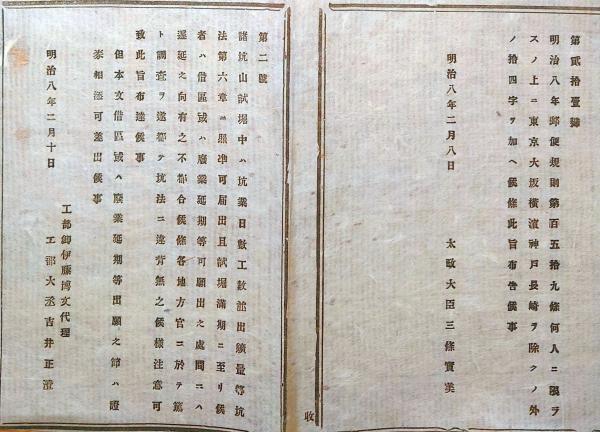 第貳拾壹號
明治八年郵便規則第百五拾九條何人ニ限ラ
スノ上ニ東京大坂橫濱神戸長崎ヲ除クノ外
ノ拾四字ヲ加ヘ候條此旨布告候事
明治八年二月八日
太政大臣三條實美
第二號
諸坑山試掘中ハ坑業日數工數並出鑛量等坑
法第六章ニ照準可届出且試掘滿期ニ至リ候
者ハ借區或ハ廢業延期等可願出之處間ニハ
遲延之向有之不都合候條各地方官ニ於テ篤
ト調查ヲ遂ケテ坑法ニ違背無之候樣注意可
致此旨布達候事
但本文借區或ハ廢業延期等出願之節ハ證
券相添可差出候事
明治八年二月十日
工部卿伊藤博文代理
工部大丞吉井正澄
收